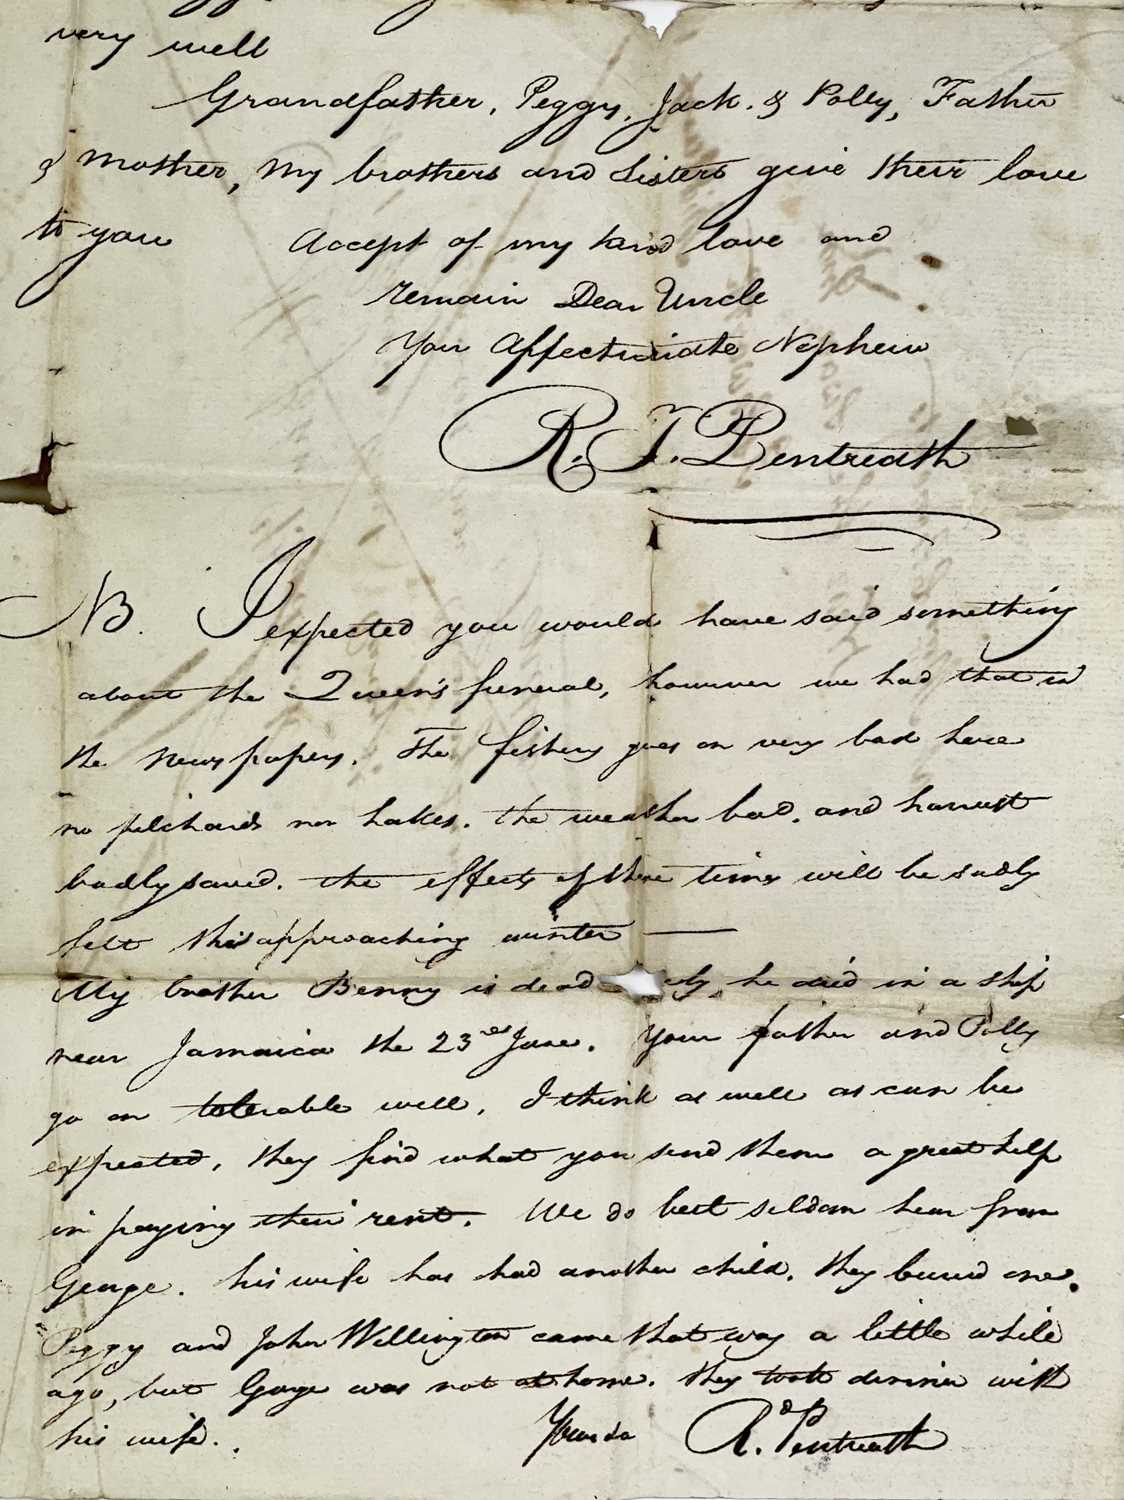 very well
Grandfather, Peggy, Jack. & Polly, Father
& Mother, My brothers and Sisters give their love
to you Accept of my kind love and
remain Dear Uncle
Your Affectionate Nephew
R. T. Pentreath
NB. I expected you would have said something
about the Queen's funeral, however we had that in
the Newspapers. The fishery goes on very bad here
no pilchards nor hakes. the weather bad, and harvest
badly saved. the effects of these times will be sadly
felt this approaching winter —
My brother Benny is dead he died in a ship
near Jamaica the 23rd June. Your father and Polly
go on tolerable well, I think as well as can be
expected, they find what you send them a great help
in paying their rent. We do but seldom hear from
George. his wife has had another child, they buried one.
Peggy and John Wellington came that way a little while
ago, but George was not at home. they took dinner with
his wife. Yours &c Rd. Pentreath